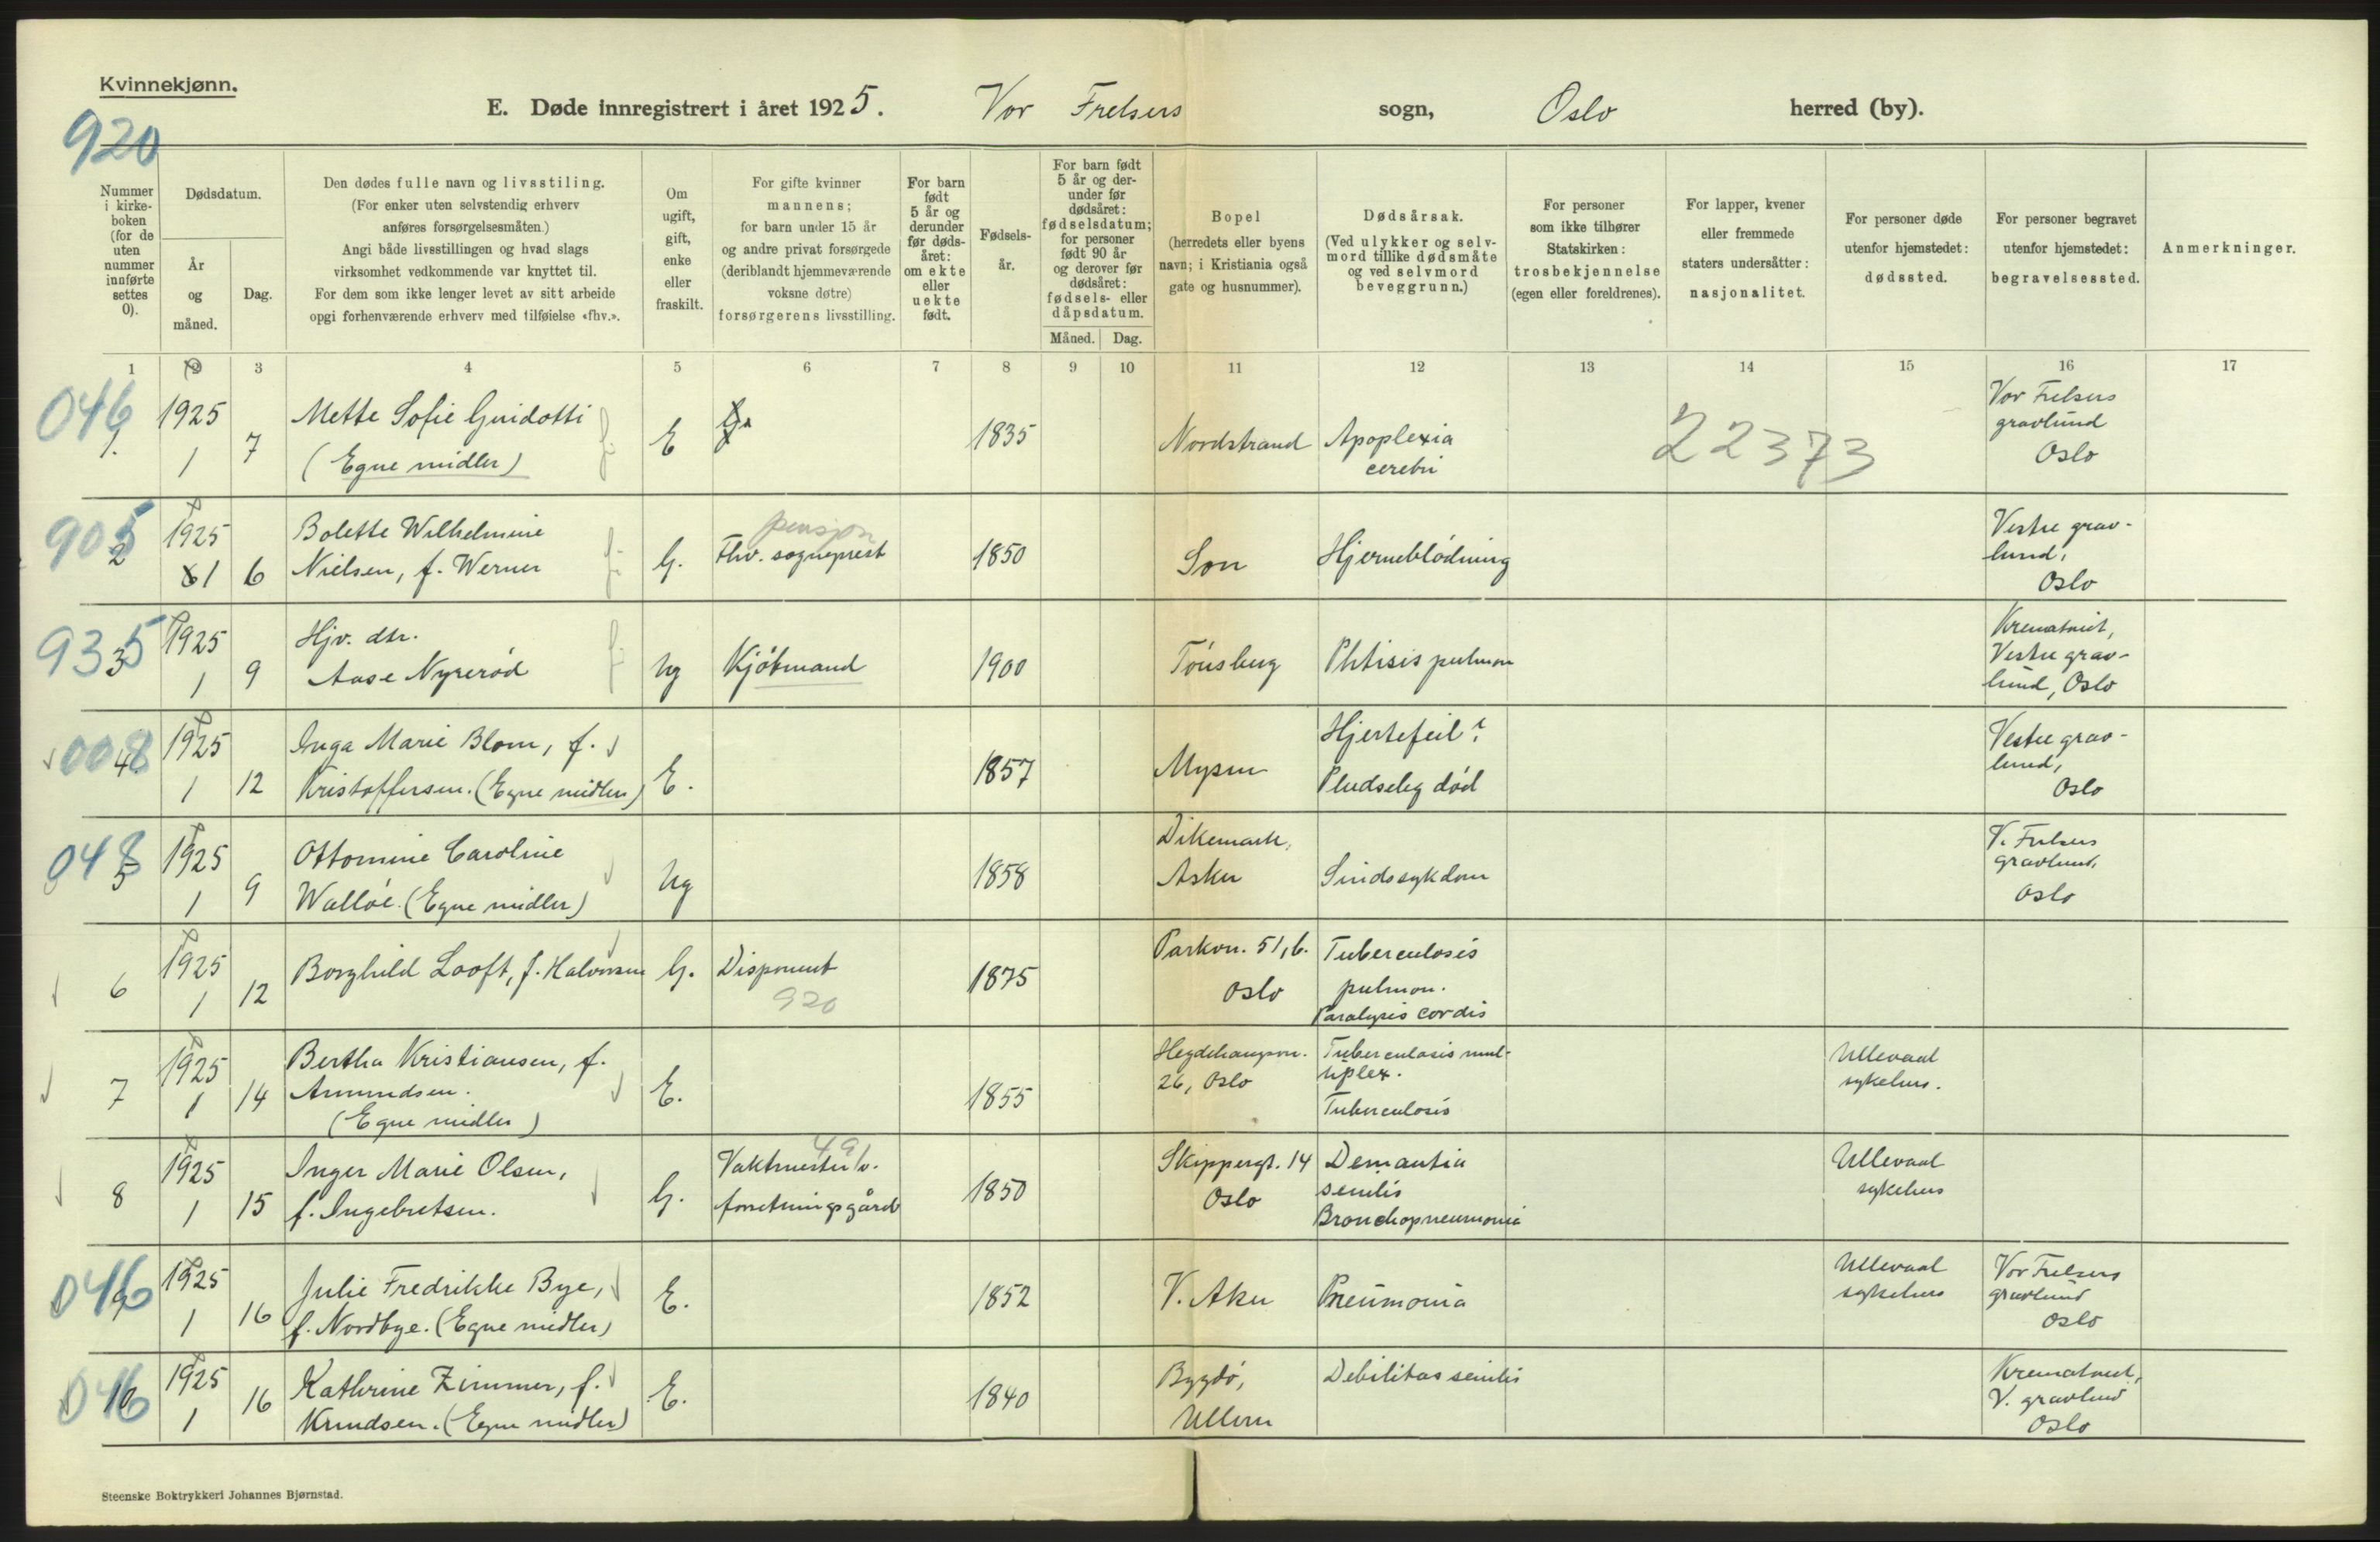 Kvinnekjønn.
E. Døde innregistrert i året 1925. Vor Frelsers sogn, Oslo herred (by).
920
Nummer
i kirke-
boken
(for de
uten
nummer
innførte
settes
0).
Dødsdatum.
År
og
måned.
Dag.
Den dødes fulle navn og livsstiling.
(For enker uten selvstendig erhverv
anføres forsørgelsesmåten.)
Angi både livsstillingen og hvad slags
virksomhet vedkommende var knyttet til.
For dem som ikke lenger levet av sitt arbeide
opgi forhenværende erhverv med tilføielse «fhv.».
Om
ugift,
gift,
enke
eller
fraskilt.
For gifte kvinner
mannens;
for barn under 15 år
og andre privat forsørgede
(deriblandt hjemmeværende
voksne døtre)
forsørgerens livsstilling.
For barn
født
5 år og
derunder
før døds-
året:
om ekte
eller
uekte
født.
Fødsels-
år.
For barn født
5 år og der-
under før
dødsåret:
fødselsdatum;
for personer
født 90 år
og derover før
dødsåret:
fødsels- eller
dåpsdatum.
Måned. Dag.
Bopel
(herredets eller byens
navn; i Kristiania også
gate og husnummer).
Dødsårsak.
(Ved ulykker og selv-
mord tillike dødsmåte
og ved selvmord
beveggrunn.)
For personer
som ikke tilhører
Statskirken:
trosbekjennelse
(egen eller foreldrenes).
For lapper, kvener
eller fremmede
staters undersåtter:
nasjonalitet.
For personer døde
utenfor hjemstedet:
dødssted.
For personer begravet
utenfor hjemstedet:
begravelsessted.
Anmerkninger.
1 2 3 4 5 6 7 8 9 10 11 12 13 14 15 16 17
046
1. 1925
1 7
Mette Sofie Guidotti
(Egne midler)
E 1835 Nordstrand
Apoplexia
cerebri
22373
Vor Frelsers
gravlund
Oslo
905
2 1925
1 6
Bolette Wilhelmine
Nielsen, f. Werner
G.
pensjon
Fhv. sogneprest
1850 Son Hjerneblødning
Vestre grav-
lund,
Oslo
935
3 1925
1 9
Hjv. dtr.
Aase Nyrerød
Ug Kjøbmand 1900 Tönsberg Phtisis pulmon
Krematoriet,
Vestre grav-
lund, Oslo
008
4 1925
1 12
Inga Marie Blom, f.
Kristoffersen. (Egne midler)
E. 1857 Mysen
Hjertefeil?
Pludselig död
Vestre grav-
lund,
Oslo
048
5 1925
1 9
Ottomine Caroline
Walløe. (Egne midler)
Ug 1858
Dikemark,
Asker
Sindssykdom
V. Frelsers
gravlund,
Oslo
6 1925
1 12
Borghild Looft, f. Halvorsen
G. Disponent
920
1875
Parkvn. 51, b.
Oslo
Tuberculosis
pulmon.
Paralysis cordis
7 1925
1 14
Bertha Kristiansen, f.
Amundsen.
(Egne midler)
E. 1855
Hegdehaugsvn.
26, Oslo
Tuberculosis mul-
tiplex.
Tuberculosis
Ullevaal
sykehus.
8 1925
1 15
Inger Marie Olsen,
f. Ingebretsen.
G.
Vaktmester v.
forretningsgård
1850
Skippergt. 14
Oslo
Demantia
senilis
Bronchopneumonia
Ullevaal
sykehus
046
9 1925
1 16
Julie Fredrikke Bye,
f. Nordbye. (Egne midler)
E. 1852 V. Aker Pneumonia
Ullevaal
sykehus
Vor Frelsers
gravlund
Oslo
046
10 1925
1 16
Kathrine Zimmer, f.
Knudsen. (Egne midler)
E. 1840
Bygdö,
Ullern
Debilitas senilis
Krematoriet,
V. gravlund
Oslo
Steenske Boktrykkeri Johannes Bjørnstad.